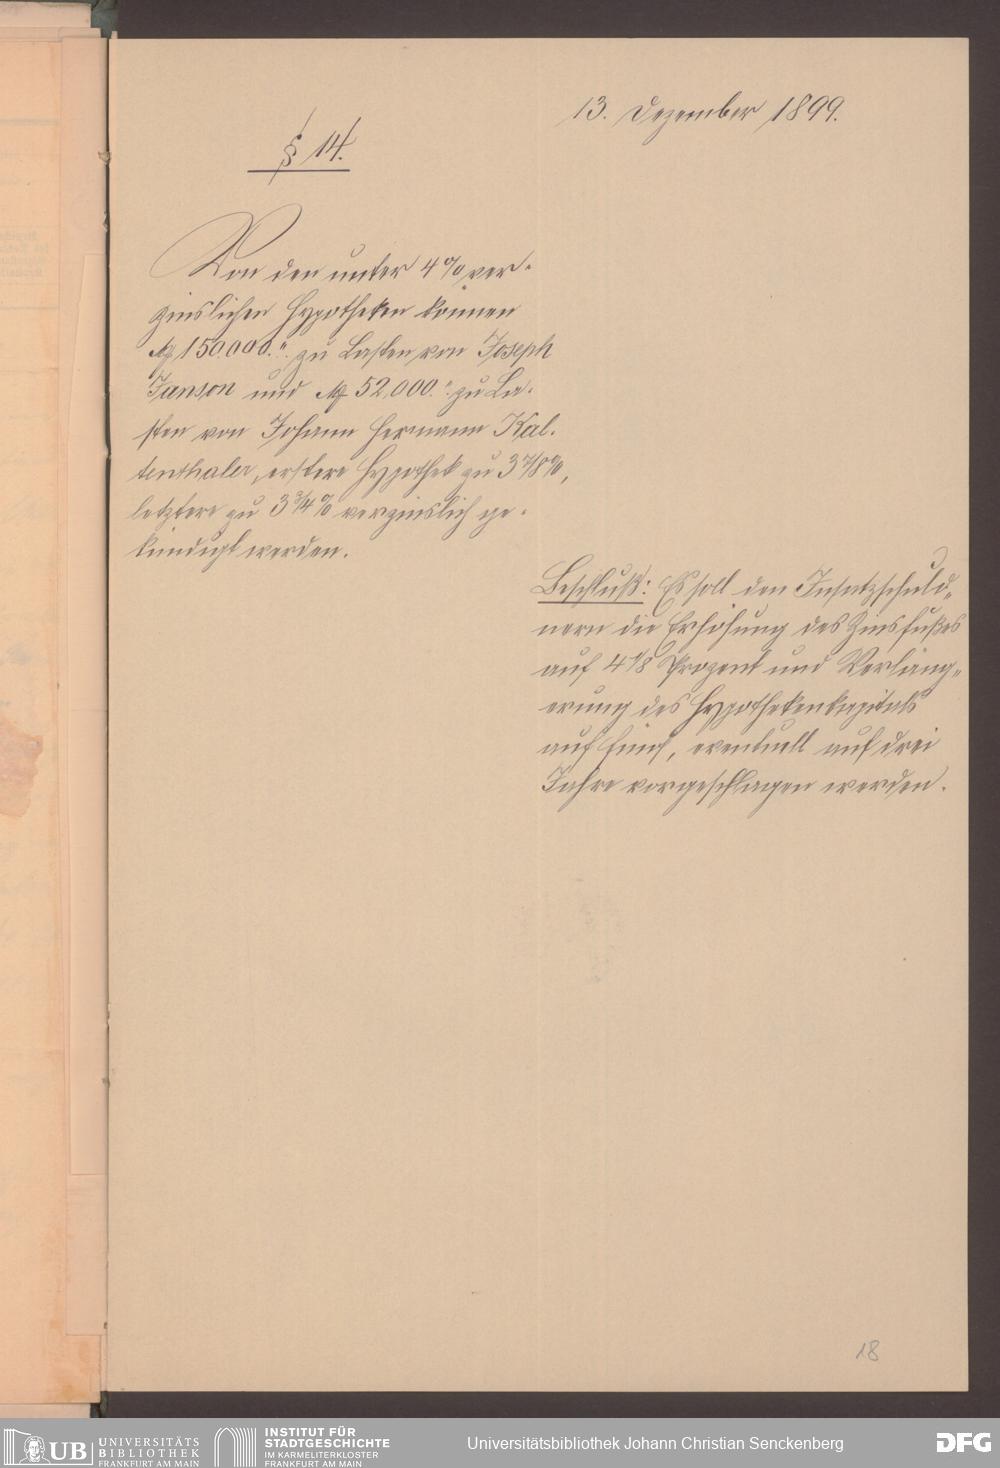 13. Dezember 1899.
§ 14.
Von den unter 4% ver-
zinslichen Hypotheken können
M 150,000.„ zu Lasten von Joseph
Janson und M 52,000.„ zu La-
sten von Johann Hermann Kal-
tenthaler, erstere Hypothek zu 3 7/8 %,
letztere zu 3 3/4 % verzinslich ge-
kündigt werden.
Beschluß: Es soll den Insatzschuld„
nern die Erhöhung des Zinsfußes
auf 4 1/8 Prozent und Verläng„
erung des Hypothekenkapitals
auf fünf, eventuell auf drei
Jahre vorgeschlagen werden.
18
UB UNIVERSITÄTS
BIBLIOTHEK
FRANKFURT AM MAIN
INSTITUT FÜR
STADTGESCHICHTE
IM KARMELITERKLOSTER
FRANKFURT AM MAIN
Universitätsbibliothek Johann Christian Senckenberg
DFG